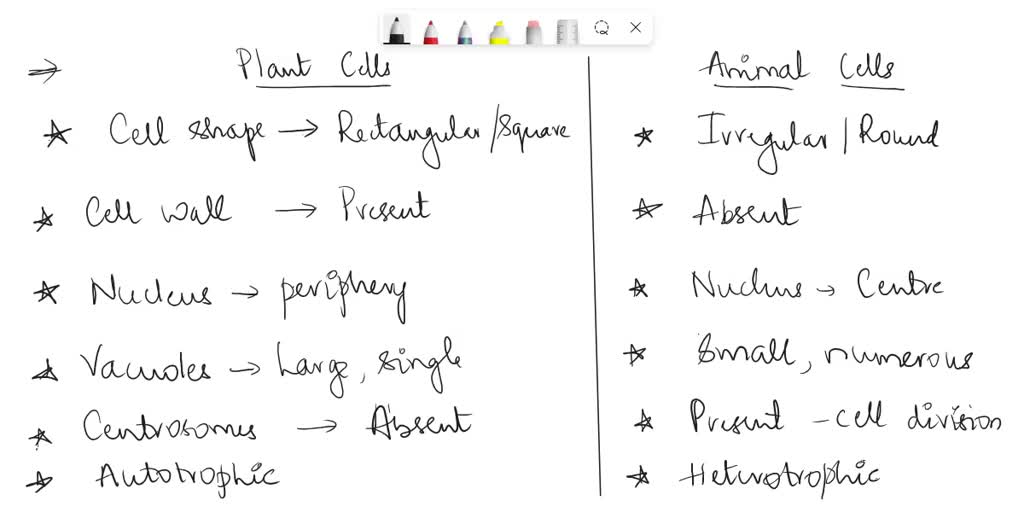 → Plant Cells Animal Cells
★ Cell shape → Rectangular/Square ★ Irregular | Round
★ Cell wall → Present ★ Absent
★ Nucleus → periphery ★ Nucleus → Centre
★ Vacuoles → Large, single ★ Small, numerous
★ Centrosomes → Absent ★ Present - cell division
★ Autotrophic ★ Heterotrophic